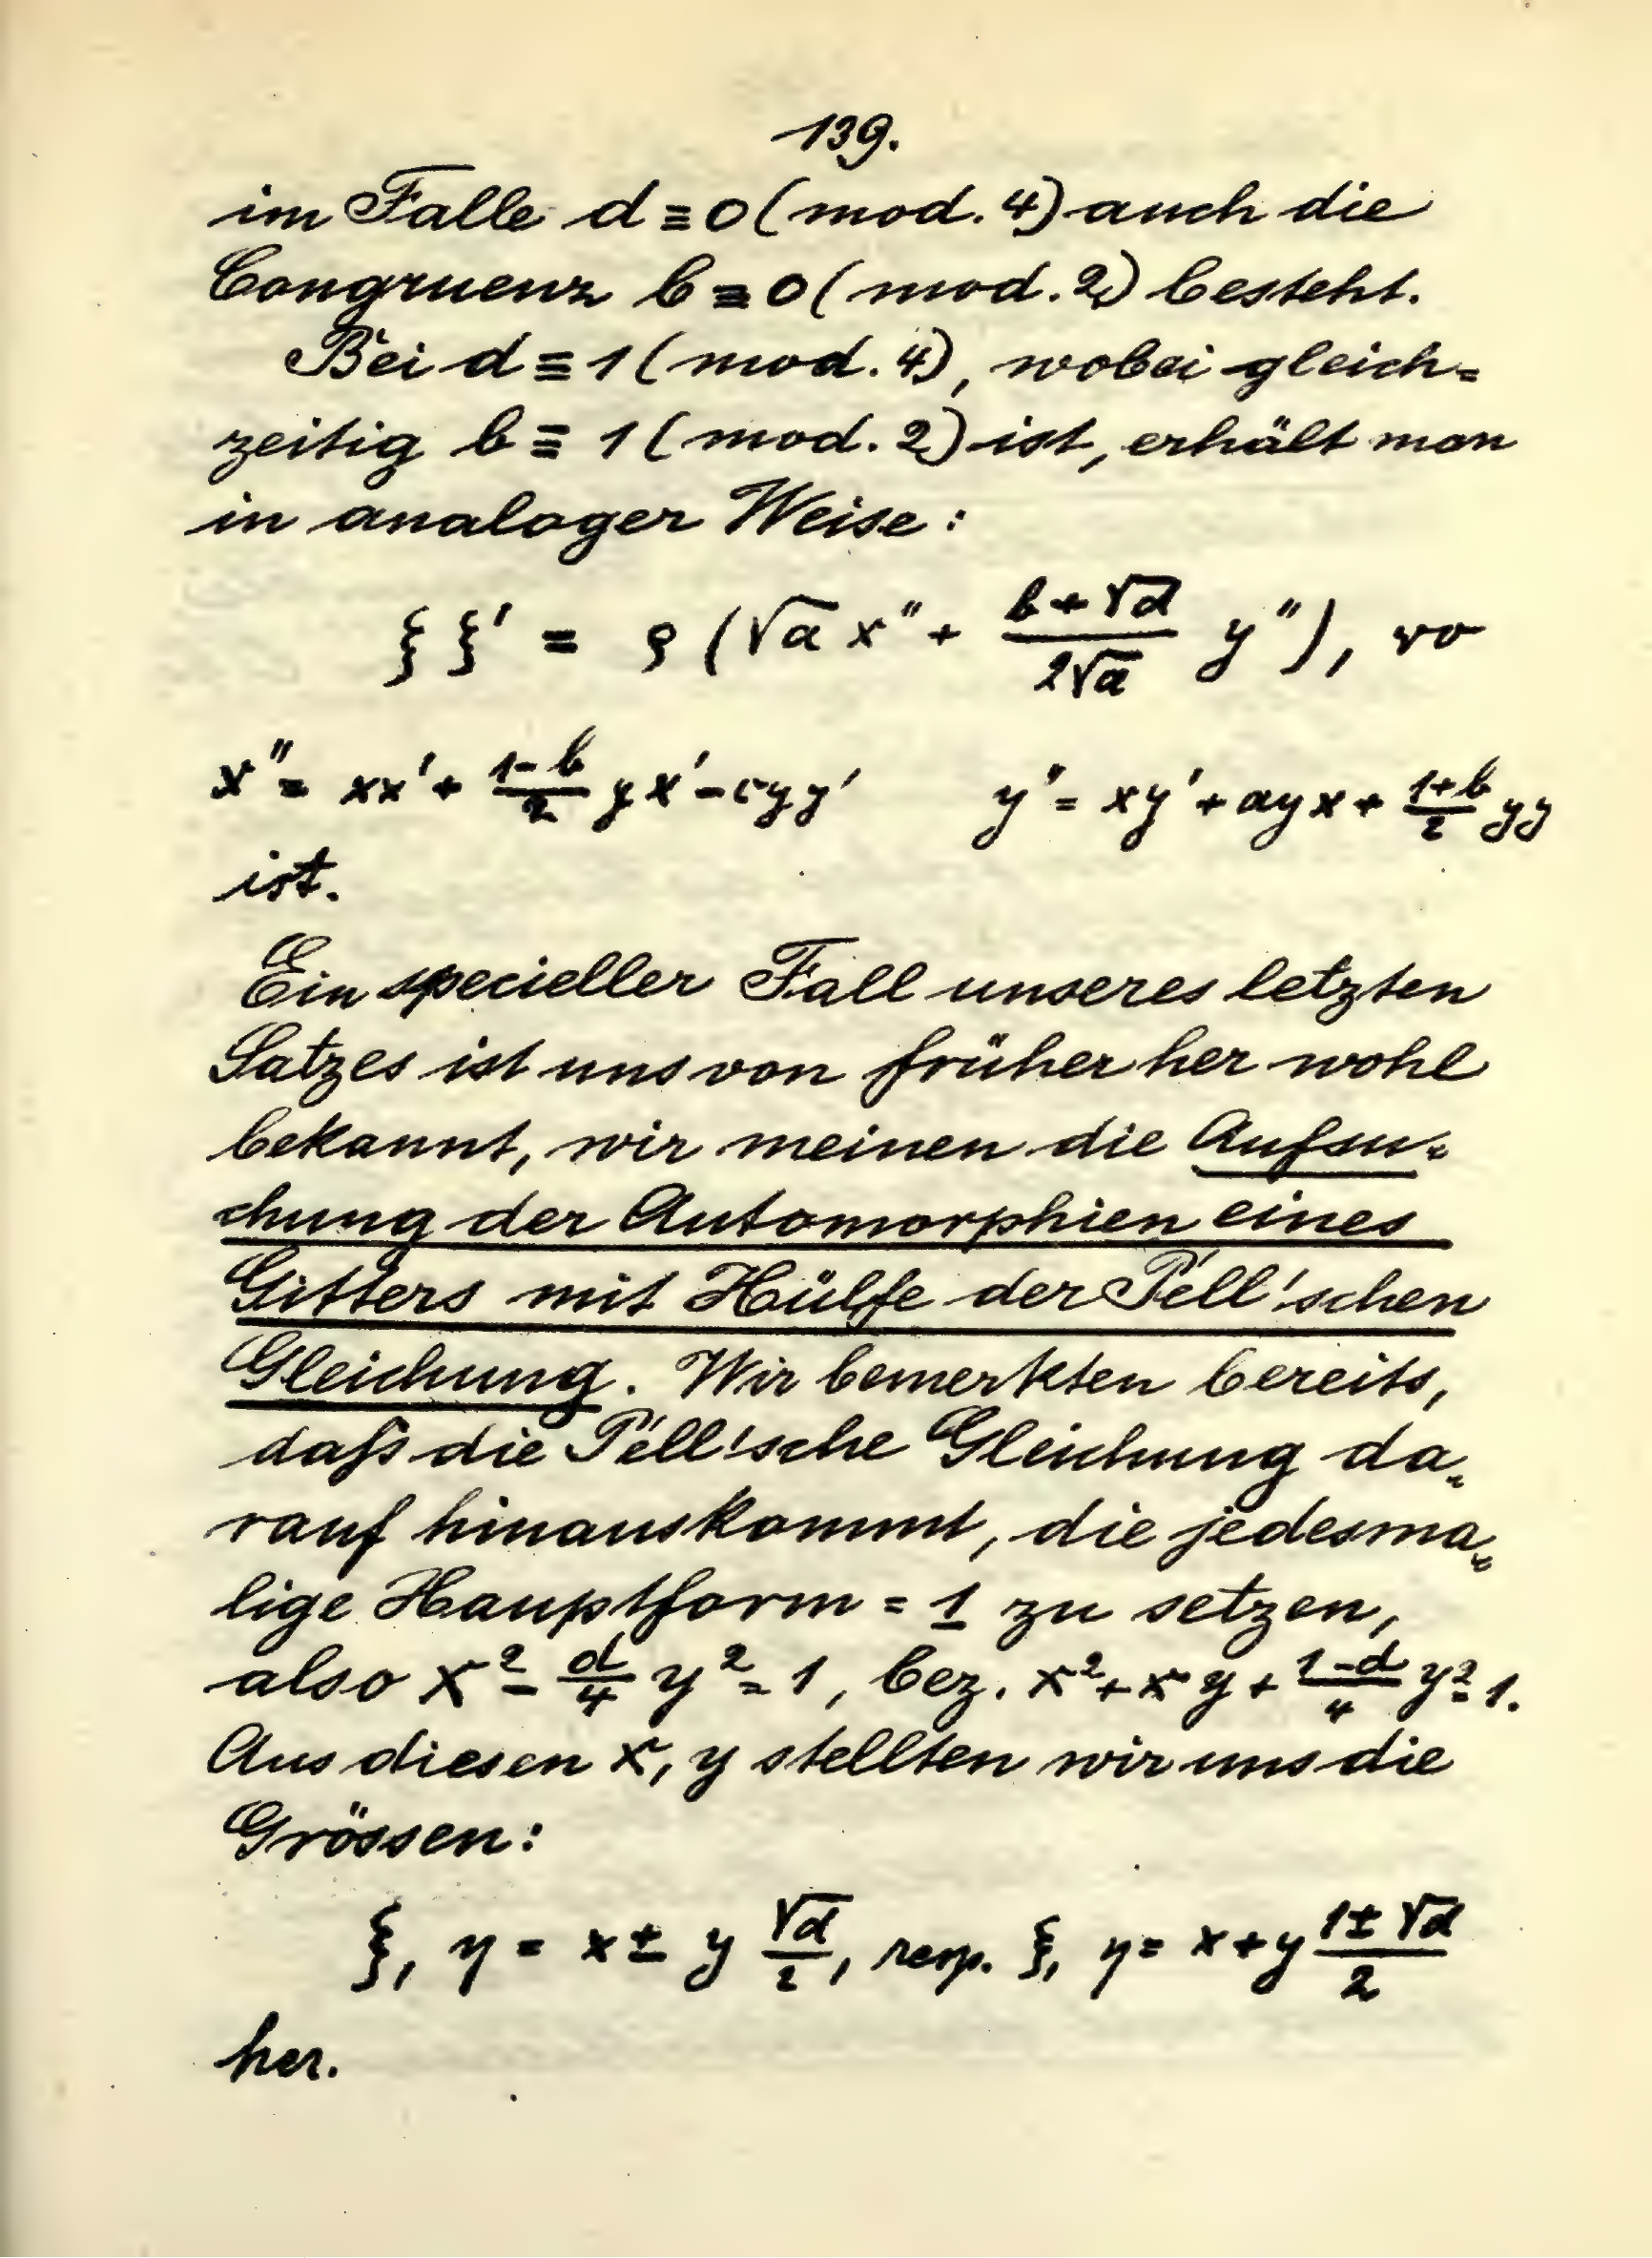 139.
im Falle d ≡ 0 (mod. 4) auch die
Congruenz b ≡ 0 (mod. 2) besteht.
Bei d ≡ 1 (mod. 4), wobei gleich=
zeitig b ≡ 1 (mod. 2) ist, erhält man
in analoger Weise:
ξ ξ' = ρ (√a x'' + (b+√d)/(2√a) y''), wo
x'' = xx' + (1-b)/2 yx' - cyy'   y'' = xy' + ayx + (1+b)/2 yy
ist.
Ein specieller Fall unseres letzten
Satzes ist uns von früher her wohl
bekannt, wir meinen die Aufsu=
chung der Automorphien eines
Gitters mit Hülfe der Pell'schen
Gleichung. Wir bemerkten bereits,
daß die Pell'sche Gleichung da=
rauf hinauskommt, die jedesma=
lige Hauptform = 1 zu setzen,
also x² - d/4 y² = 1, bez. x² + xy + (1-d)/4 y² = 1.
Aus diesen x, y stellten wir uns die
Grössen:
ξ, η = x ± y √d/2, resp. ξ, η = x + y (1±√d)/2
her.